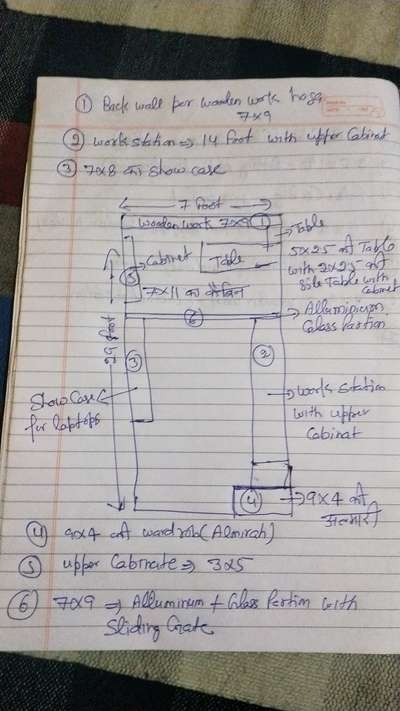 ① Back wall per wooden work hoga
7x9
② work station ⇒ 14 foot with upper Cabinet
③ 7x8 का show case
7 foot
Wooden work 7x9 ①
Table
⑤ Cabinet
Table
5x2.5 की Table
with 2x2.5 की
Side Table with
Cabinet
7x11 का केबिन
⑥
Alluminium
Glass Partion
25 foot
③
②
Show Case
for laptops
Work Station
with upper
Cabinet
④
9x4 की
अलमारी
④ 9x4 की wardrob (Almirah)
⑤ upper Cabinate ⇒ 3x5
⑥ 7x9 ⇒ Alluminum + Glass Partim with
Sliding Gate